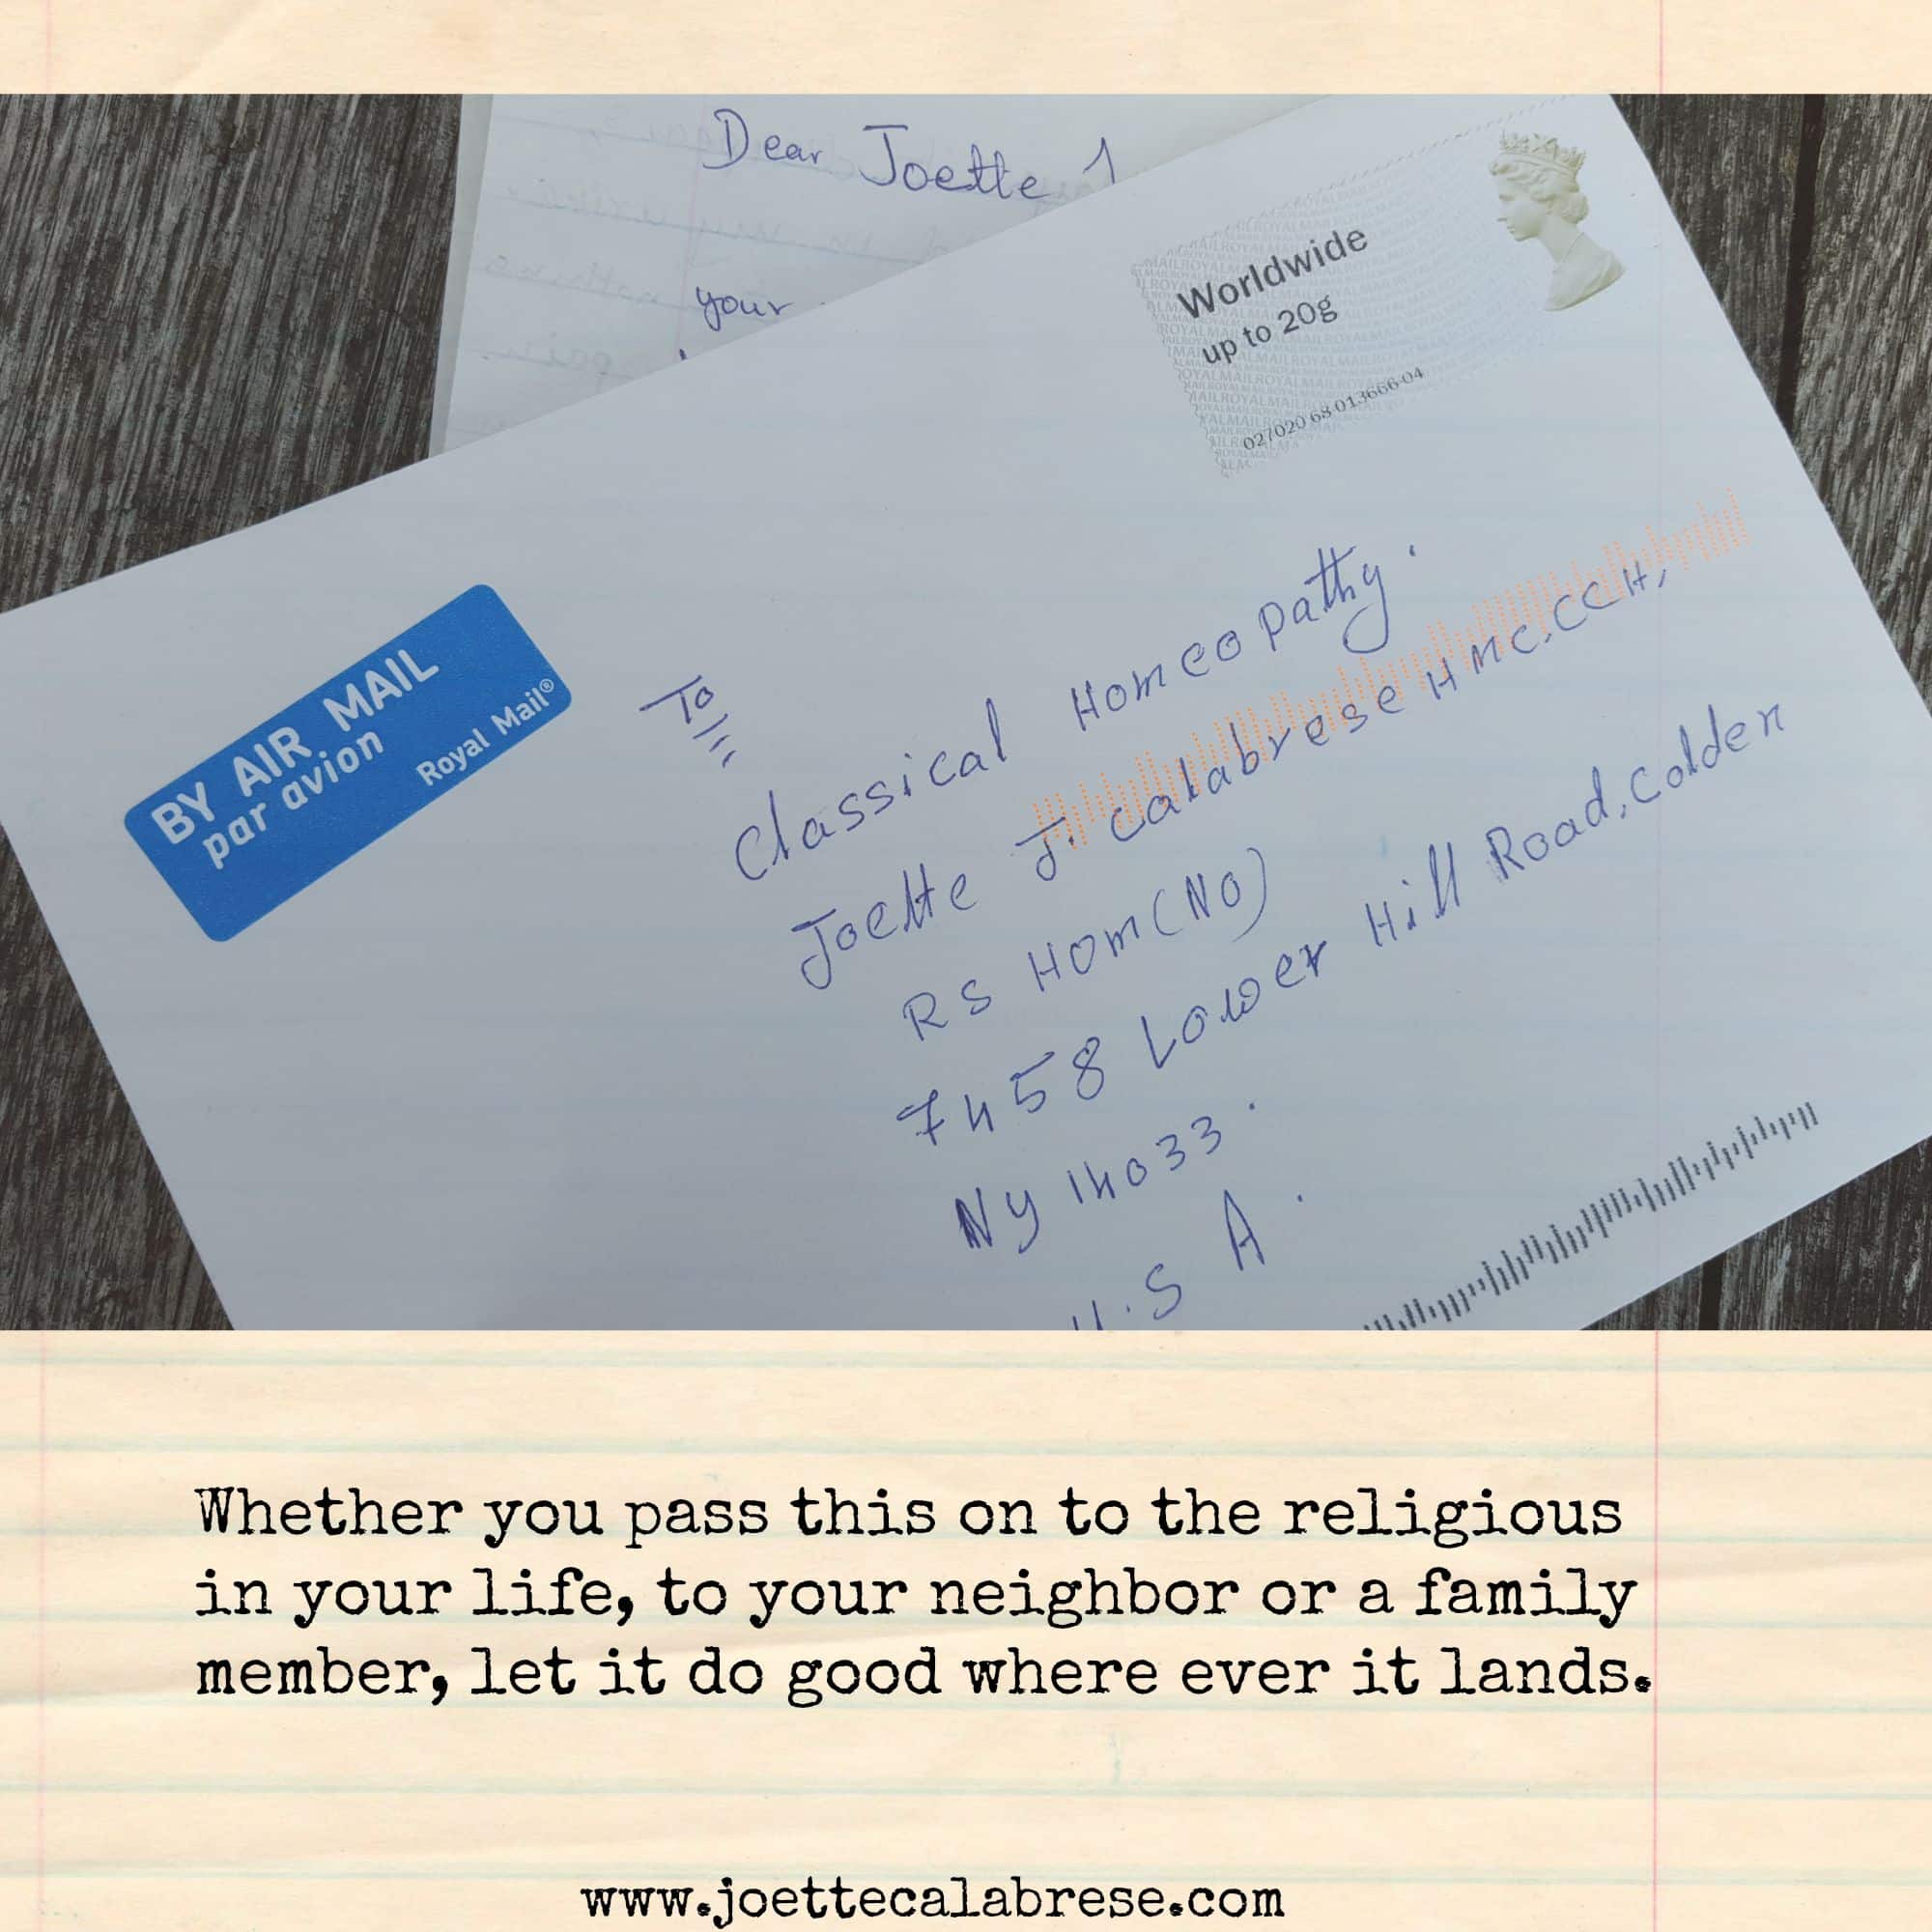 Dear Joette
your
Worldwide
up to 20g
027020 68 013666-04
BY AIR MAIL
par avion
Royal Mail®
To
Classical Homeopathy.
Joette J. Calabrese HMC.CCH,
RS Hom(NO)
7458 Lower Hill Road, Colden
Ny 14033.
U.S A.
Whether you pass this on to the religious
in your life, to your neighbor or a family
member, let it do good where ever it lands.
www.joettecalabrese.com